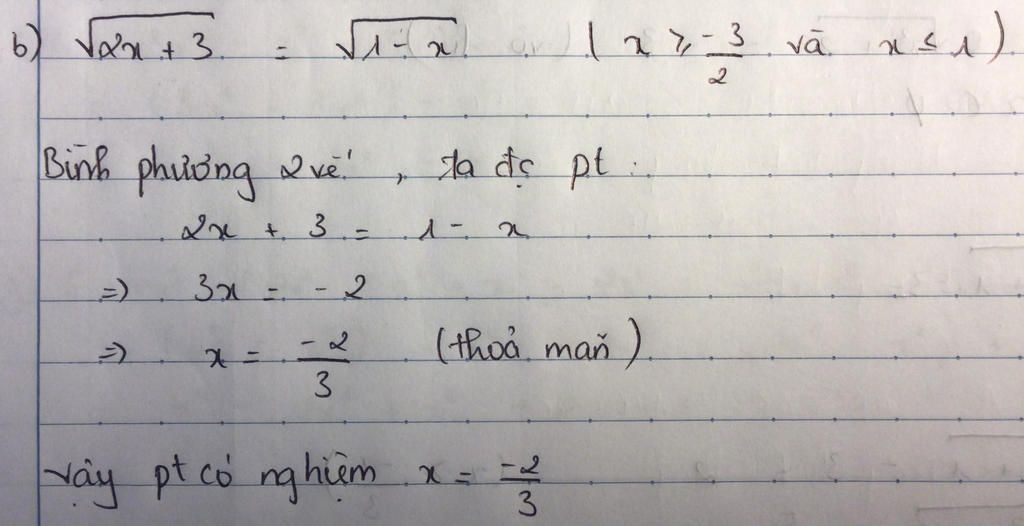 b) √(2x + 3) = √(1 - x) ( x ≥ -3/2 và x ≤ 1 )
Bình phương 2 vế , ta đc pt :
2x + 3 = 1 - x
=> 3x = - 2
=> x = -2/3 (thoả mãn)
Vậy pt có nghiệm x = -2/3